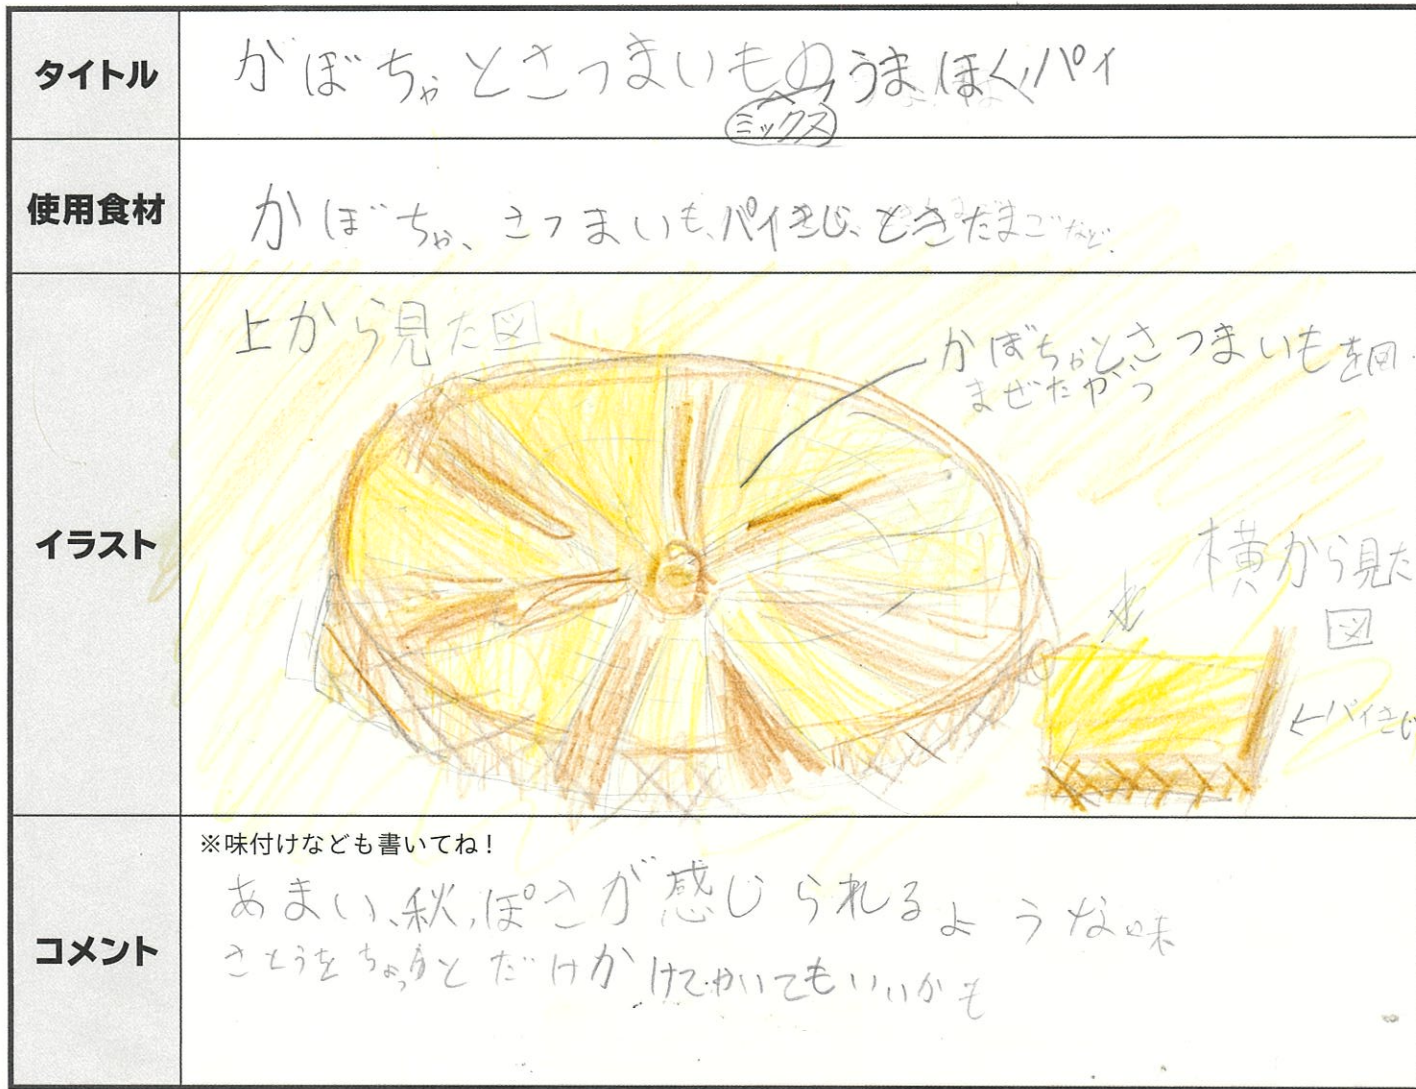 タイトル
かぼちゃとさつまいもの うまほくパイ
ミックス
使用食材
かぼちゃ、さつまいも、パイきじ、ときたまごなど
イラスト
上から見た図
かぼちゃとさつまいもを
まぜたやつ
横から見た
図
←パイきじ
コメント
※味付けなども書いてね！
あまい、秋っぽさが感じられるような味
さとうをちょっとだけかけてやいてもいいかも